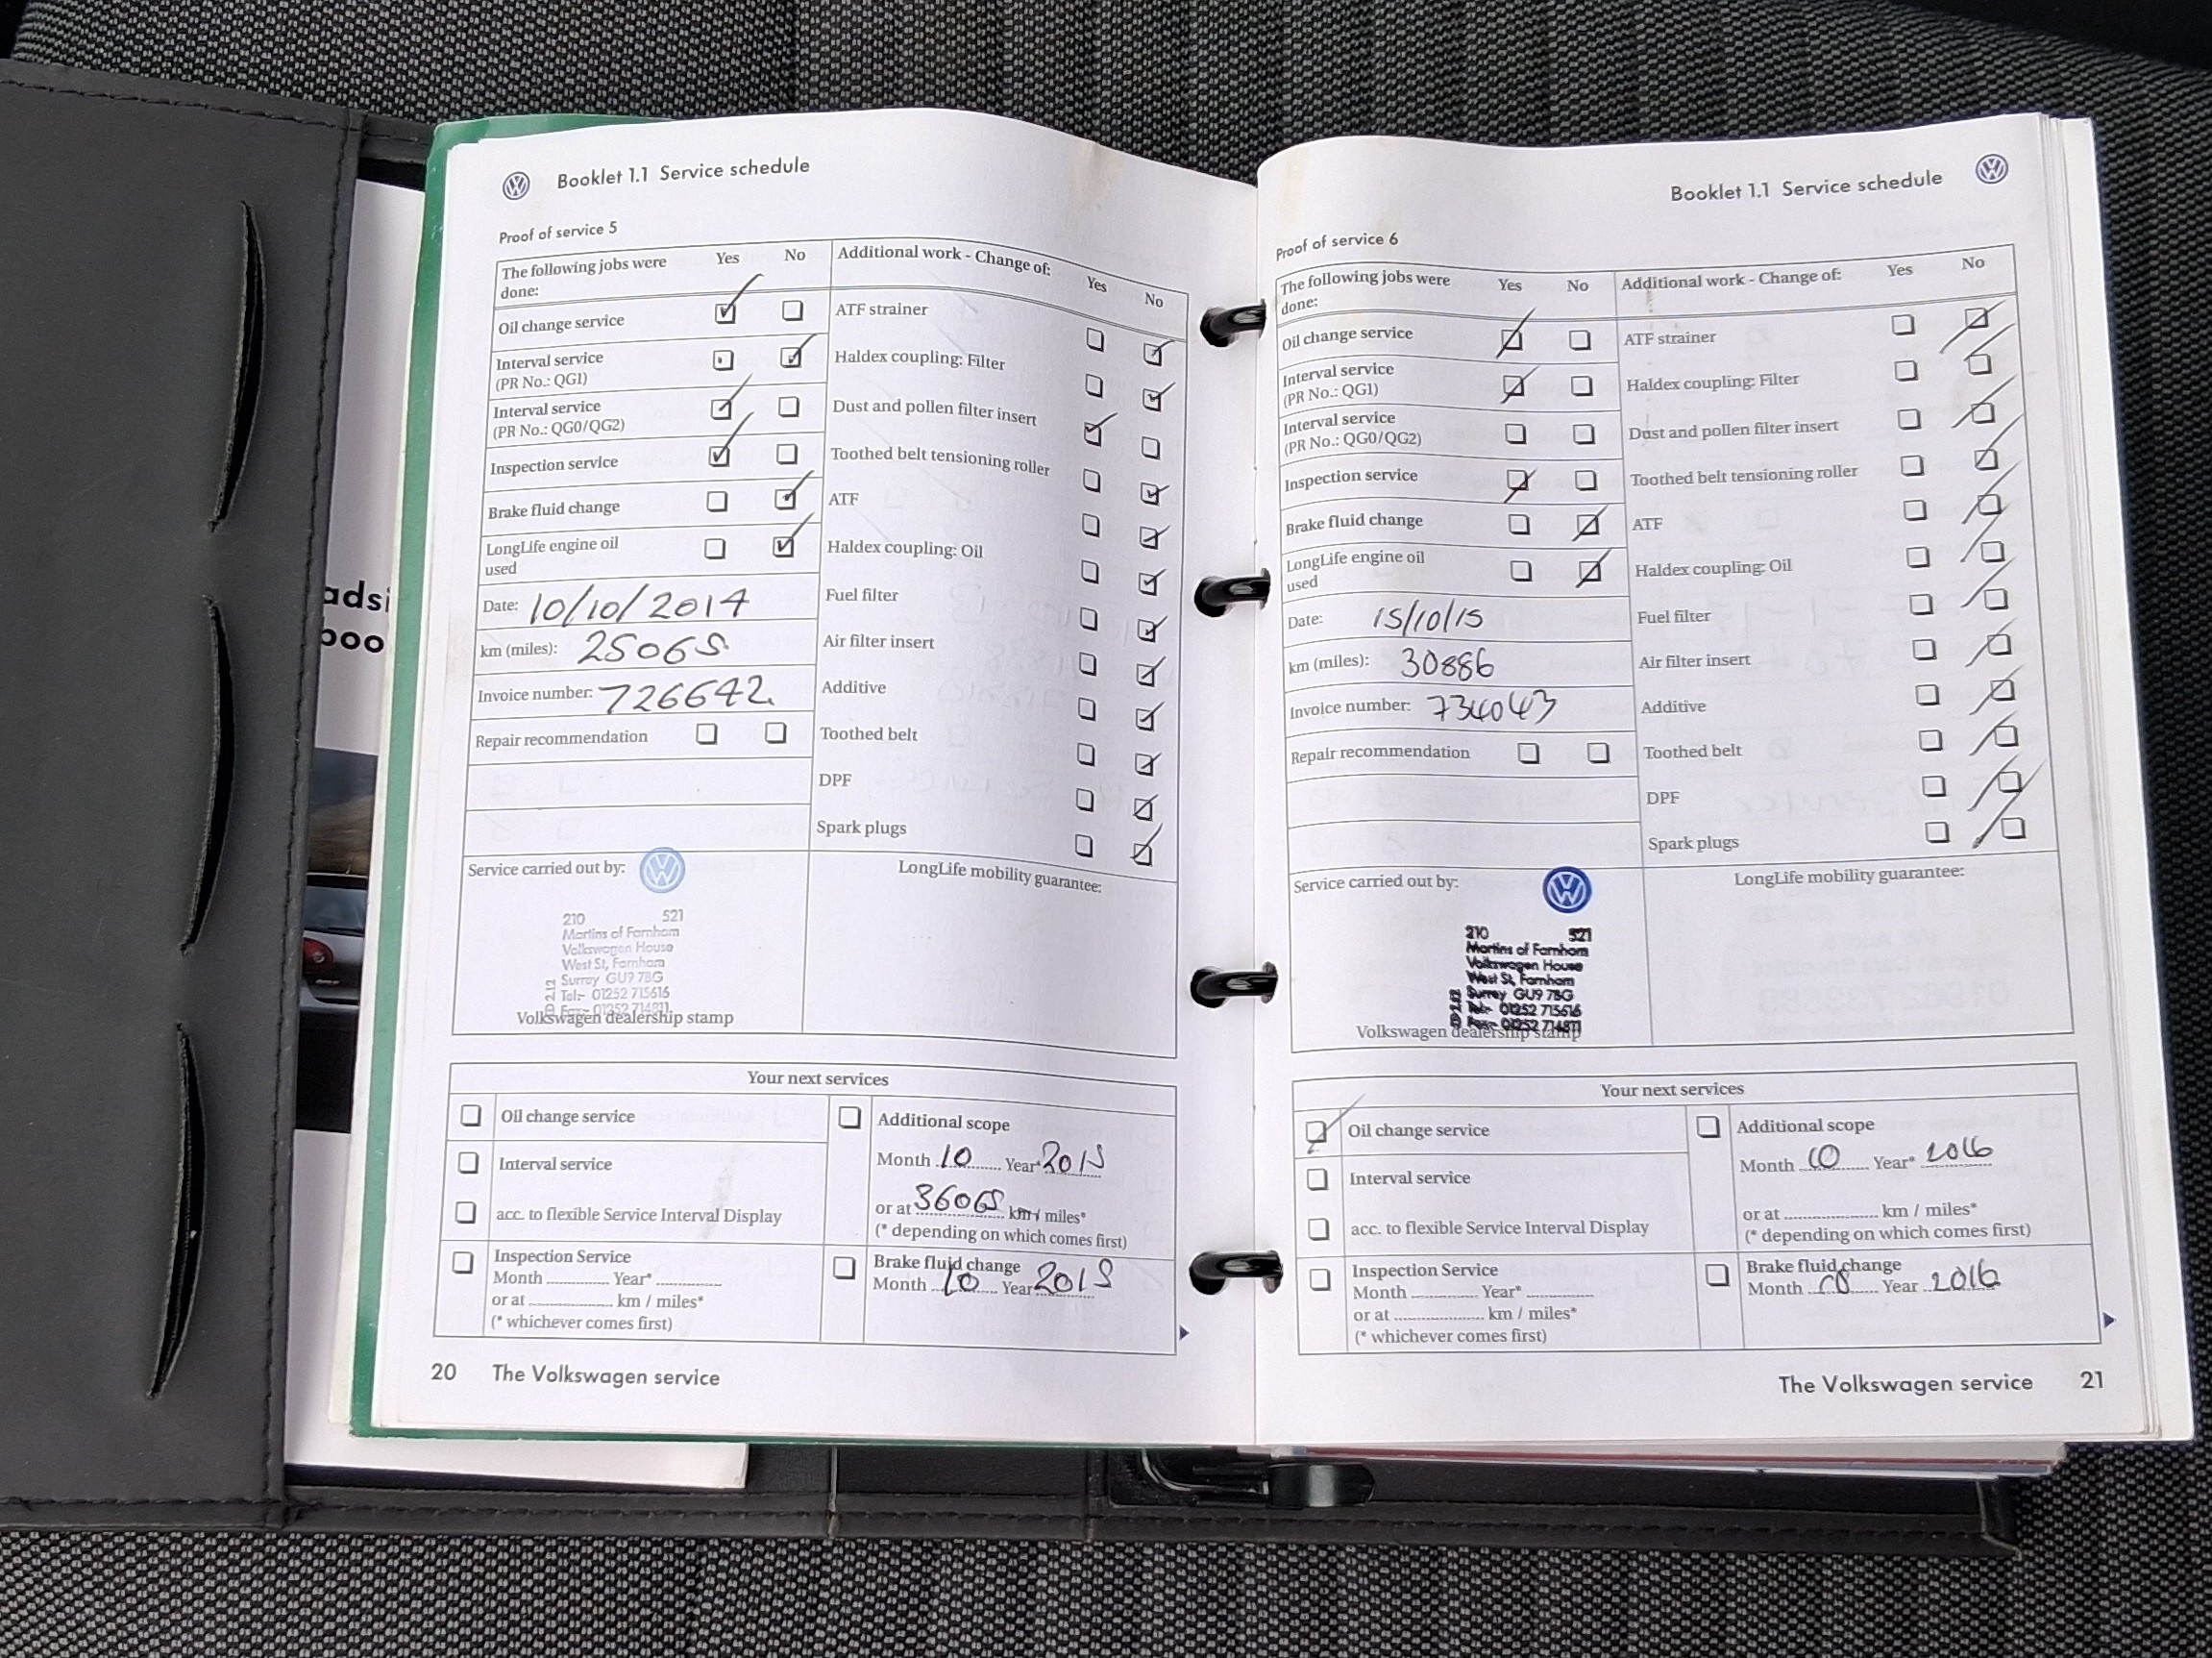 adsi
boo
Booklet 1.1 Service schedule
Proof of service 5
The following jobs were done:
Yes No
Additional work - Change of:
Yes No
Oil change service
Interval service
(PR No.: QG1)
Interval service
(PR No.: QG0/QG2)
Inspection service
Brake fluid change
LongLife engine oil
used
Date: 10/10/2014
km (miles): 25065
Invoice number: 726642
Repair recommendation
ATF strainer
Haldex coupling: Filter
Dust and pollen filter insert
Toothed belt tensioning roller
ATF
Haldex coupling: Oil
Fuel filter
Air filter insert
Additive
Toothed belt
DPF
Spark plugs
Service carried out by:
210 521
Martins of Farnham
Volkswagen House
West St, Farnham
Surrey GU9 7BG
Tel:- 01252 715616
Fax:- 01252 714811
Volkswagen dealership stamp
LongLife mobility guarantee:
Your next services
Oil change service
Interval service
acc. to flexible Service Interval Display
Inspection Service
Month Year*
or at km / miles*
(* whichever comes first)
Additional scope
Month 10 Year* 2015
or at 36065 km / miles*
(* depending on which comes first)
Brake fluid change
Month 10 Year 2015
20 The Volkswagen service
Booklet 1.1 Service schedule
Proof of service 6
The following jobs were done:
Yes No
Additional work - Change of:
Yes No
Oil change service
Interval service
(PR No.: QG1)
Interval service
(PR No.: QG0/QG2)
Inspection service
Brake fluid change
LongLife engine oil
used
Date: 15/10/15
km (miles): 30886
Invoice number: 734043
Repair recommendation
ATF strainer
Haldex coupling: Filter
Dust and pollen filter insert
Toothed belt tensioning roller
ATF
Haldex coupling: Oil
Fuel filter
Air filter insert
Additive
Toothed belt
DPF
Spark plugs
Service carried out by:
210 521
Martins of Farnham
Volkswagen House
West St, Farnham
Surrey GU9 7BG
Tel:- 01252 715616
Fax:- 01252 714811
Volkswagen dealership stamp
LongLife mobility guarantee:
Your next services
Oil change service
Interval service
acc. to flexible Service Interval Display
Inspection Service
Month Year*
or at km / miles*
(* whichever comes first)
Additional scope
Month 10 Year* 2016
or at km / miles*
(* depending on which comes first)
Brake fluid change
Month Year 2016
The Volkswagen service 21